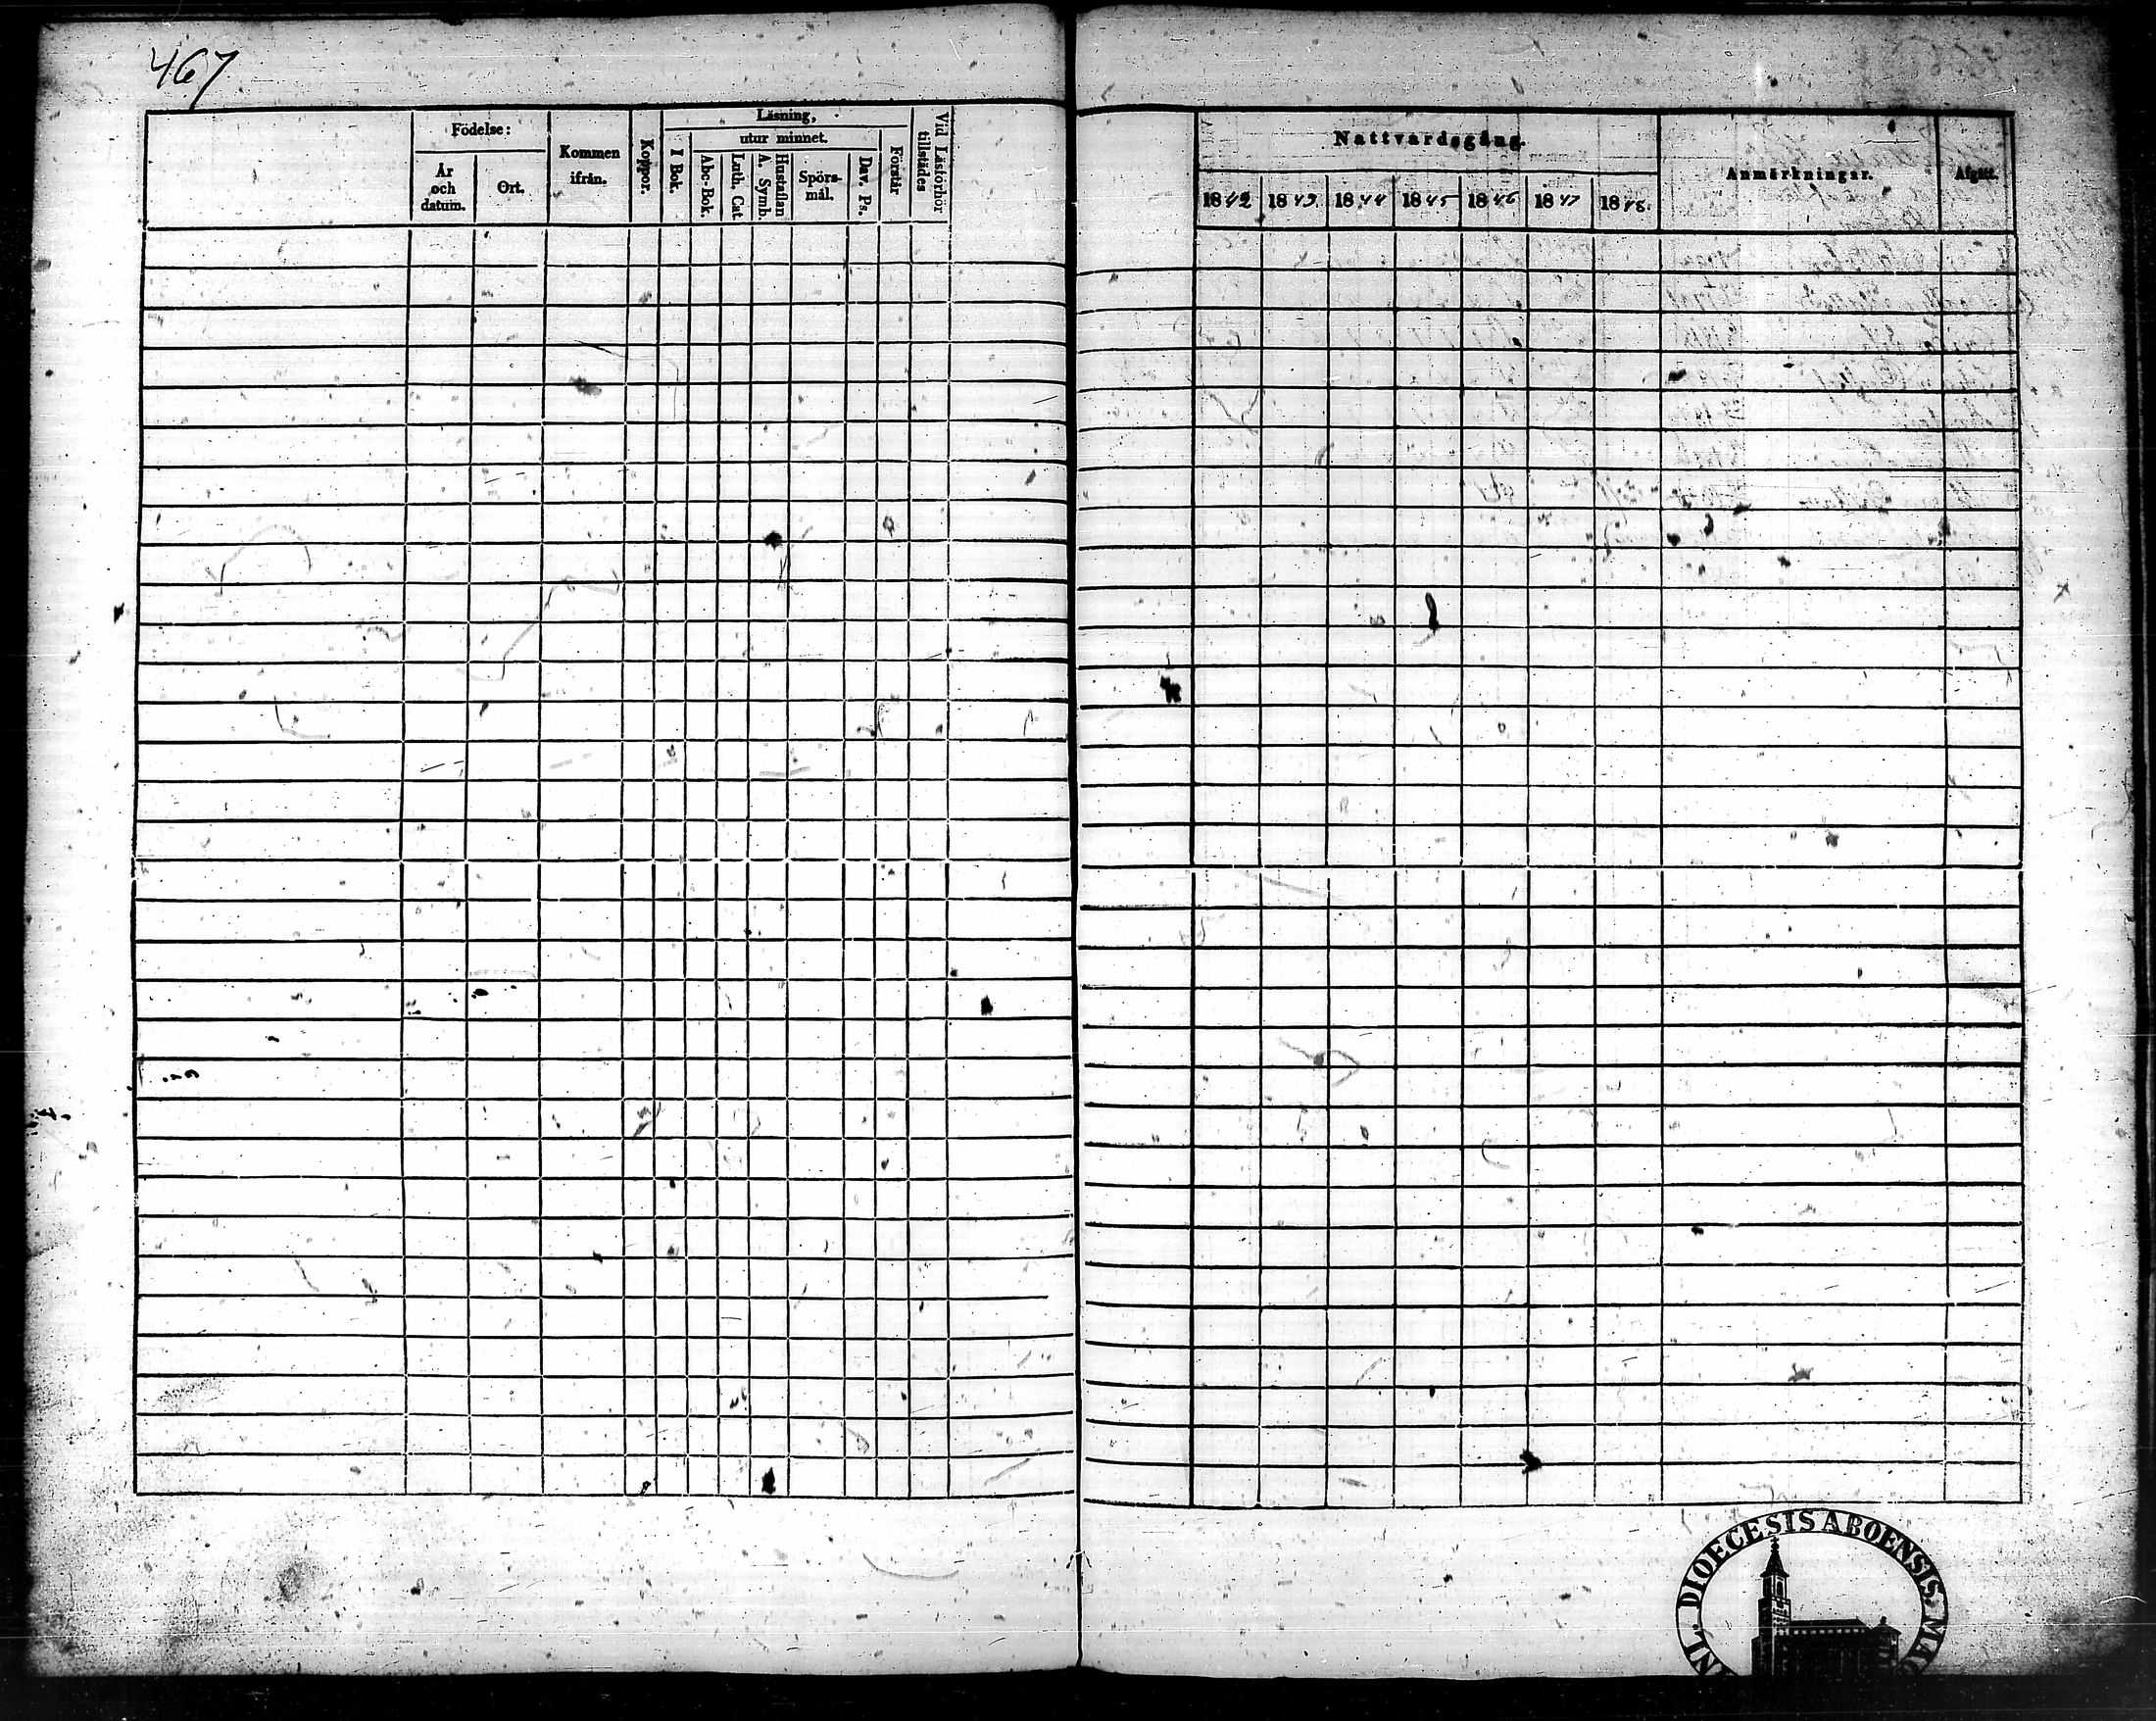 467
Födelse:
År och datum.
Ort.
Kommen ifrån.
Koppor.
Läsning,
I Bok.
utur minnet.
Abc-Bok.
Luth. Cat.
A. Symb. Hustaflan
Spörs-mål.
Dav. Ps.
Förstår
Vid Läsförhör tillstädes
Nattvardsgång.
1842 1843. 1844 1845 1846 1847 1848.
Anmärkningar.
Afgått.
DIOECESIS ABOENSIS.